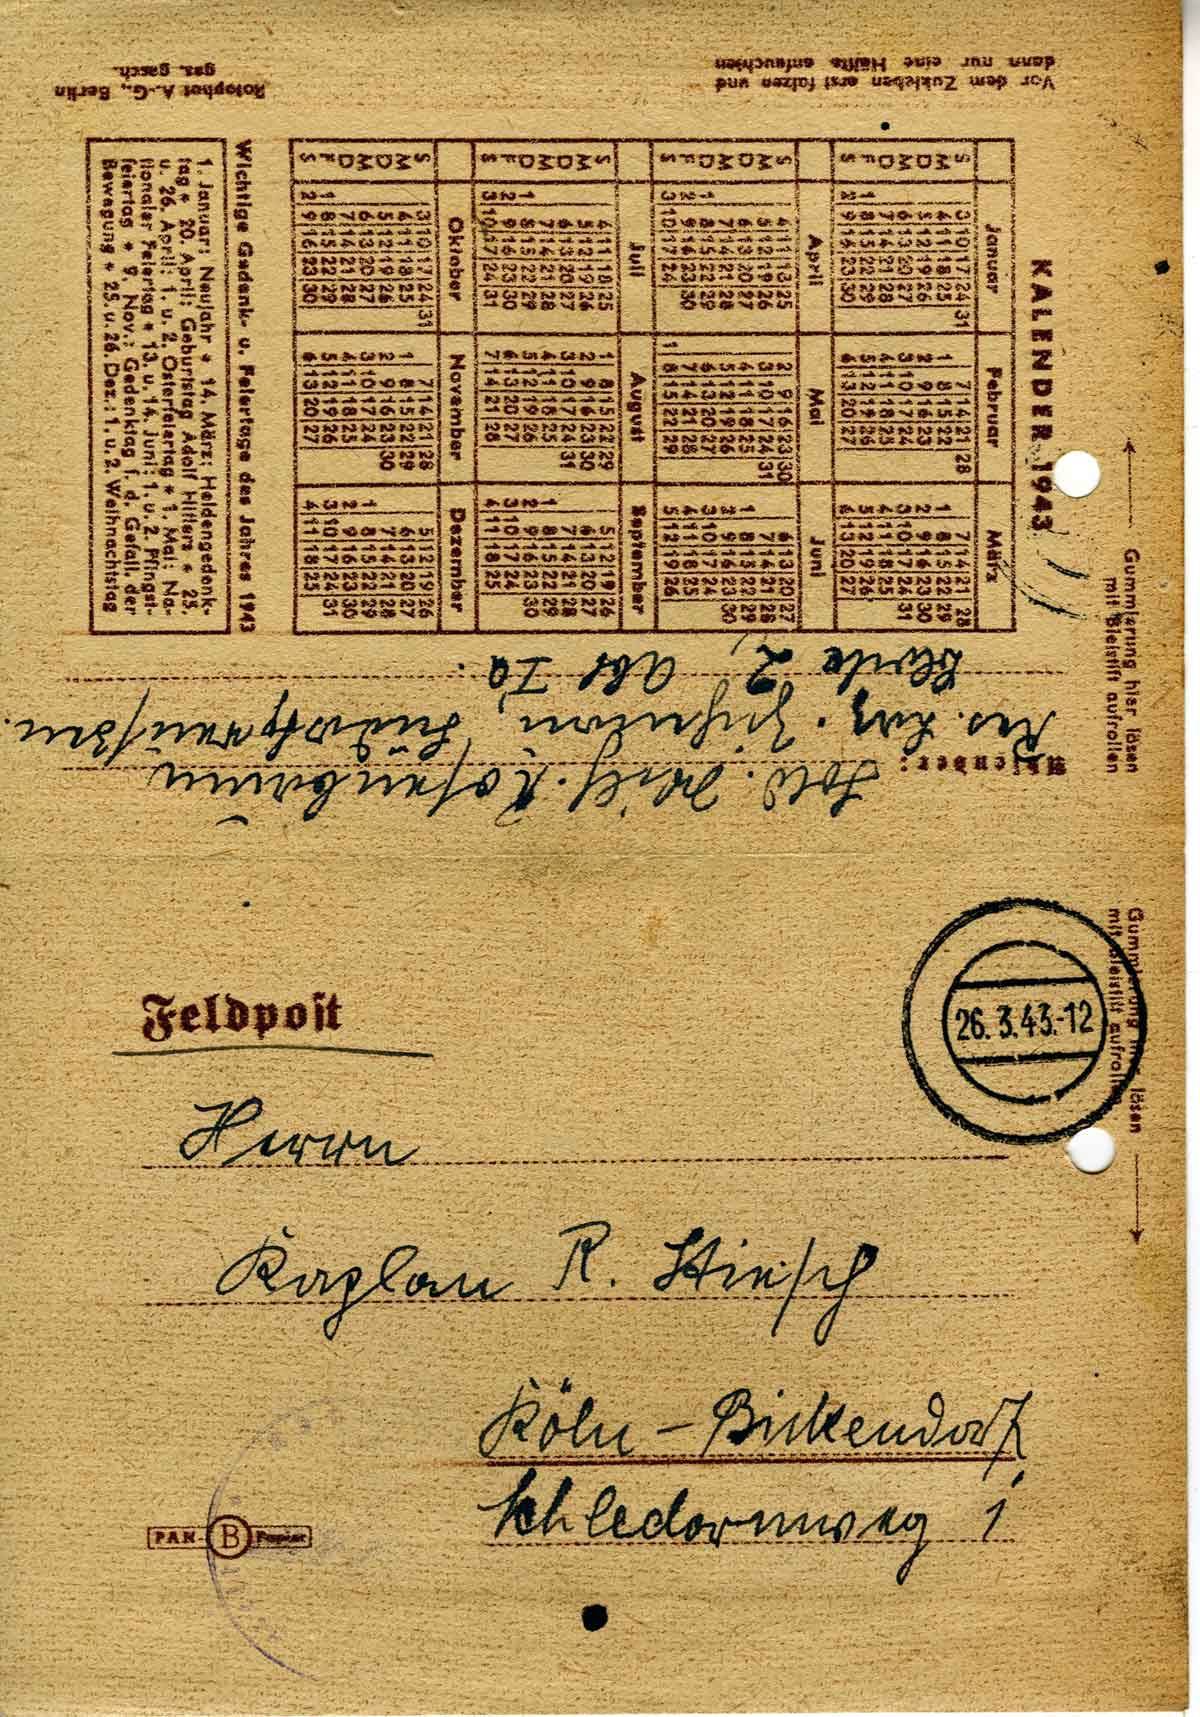 Vor dem Zukleben erst falzen und
dann nur eine Hälfte anfeuchten
Rotophot A.-G., Berlin
ges. gesch.
KALENDER 1943
Januar
Februar
März
S 3 10 17 24 31
7 14 21 28
7 14 21 28
M 4 11 18 25
1 8 15 22
1 8 15 22 29
D 5 12 19 26
2 9 16 23
2 9 16 23 30
M 6 13 20 27
3 10 17 24
3 10 17 24 31
D 7 14 21 28
4 11 18 25
4 11 18 25
F 1 8 15 22 29
5 12 19 26
5 12 19 26
S 2 9 16 23 30
6 13 20 27
6 13 20 27
April
Mai
Juni
S 4 11 18 25
2 9 16 23 30
6 13 20 27
M 5 12 19 26
3 10 17 24 31
7 14 21 28
D 6 13 20 27
4 11 18 25
1 8 15 22 29
M 7 14 21 28
5 12 19 26
2 9 16 23 30
D 1 8 15 22 29
6 13 20 27
3 10 17 24
F 2 9 16 23 30
7 14 21 28
4 11 18 25
S 3 10 17 24
1 8 15 22 29
5 12 19 26
Juli
August
September
S 4 11 18 25
1 8 15 22 29
5 12 19 26
M 5 12 19 26
2 9 16 23 30
6 13 20 27
D 6 13 20 27
3 10 17 24 31
7 14 21 28
M 7 14 21 28
4 11 18 25
1 8 15 22 29
D 1 8 15 22 29
5 12 19 26
2 9 16 23 30
F 2 9 16 23 30
6 13 20 27
3 10 17 24
S 3 10 17 24 31
7 14 21 28
4 11 18 25
Oktober
November
Dezember
S 3 10 17 24 31
7 14 21 28
5 12 19 26
M 4 11 18 25
1 8 15 22 29
6 13 20 27
D 5 12 19 26
2 9 16 23 30
7 14 21 28
M 6 13 20 27
3 10 17 24
1 8 15 22 29
D 7 14 21 28
4 11 18 25
2 9 16 23 30
F 1 8 15 22 29
5 12 19 26
3 10 17 24 31
S 2 9 16 23 30
6 13 20 27
4 11 18 25
Wichtige Gedenk- u. Feiertage des Jahres 1943
1. Januar: Neujahr * 14. März: Heldengedenk-
tag * 20. April: Geburtstag Adolf Hitlers * 25.
u. 26. April: 1. u. 2. Osterfeiertag * 1. Mai: Na-
tionaler Feiertag * 13. u. 14. Juni: 1. u. 2. Pfingst-
feiertag * 9. Nov.: Gedenktag f. d. Gefall. der
Bewegung * 25. u. 26. Dez.: 1. u. 2. Weihnachtstag
Gummierung hier lösen
mit Bleistift aufrollen
Absender: Sold. Rosenbaum
Res. Laz.
2, Abt Ia.
Gummierung hier lösen
mit Bleistift aufrollen
Feldpost
26. 3. 43.-12
Herrn
Kaplan R.
Köln - Bickendorf
Schledornweg 1
PAN B Papier